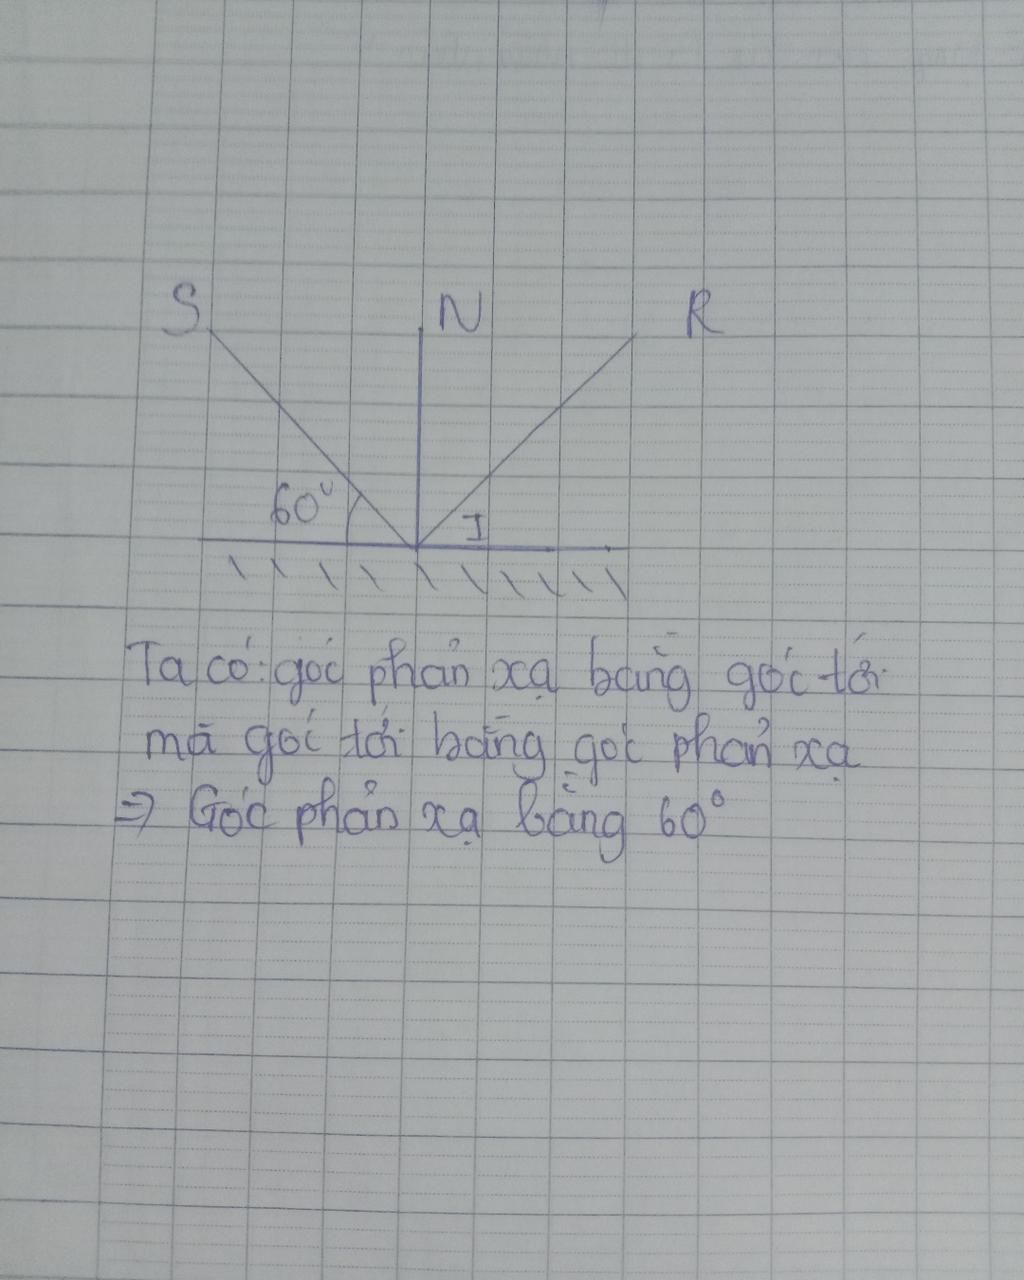 S N R
60° I
Ta có: góc phản xạ bằng góc tới
mà góc tới bằng góc phản xạ
=> Góc phản xạ bằng 60°